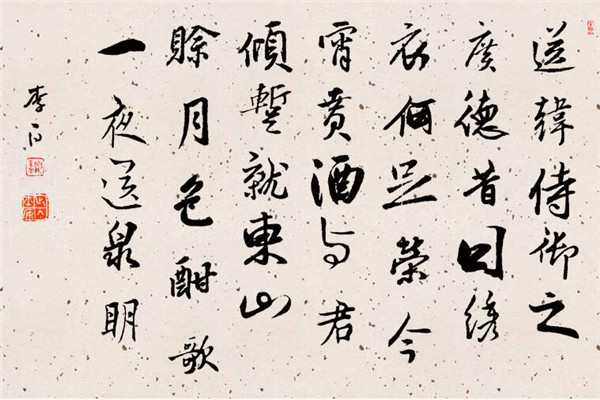 送韓侍御之
廣德昔日绣
衣何足榮今
宵貰酒与君
傾暫就東山
賒月色酣歌
一夜送泉明
李白